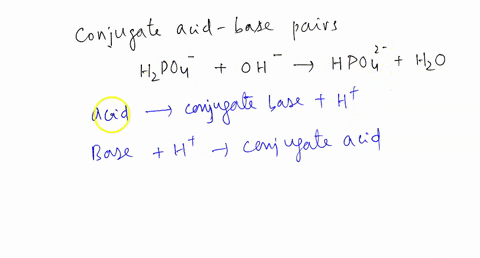 Conjugate acid-base pairs
H₂PO₄⁻ + OH⁻ → HPO₄²⁻ + H₂O
acid → conjugate base + H⁺
Base + H⁺ → conjugate acid